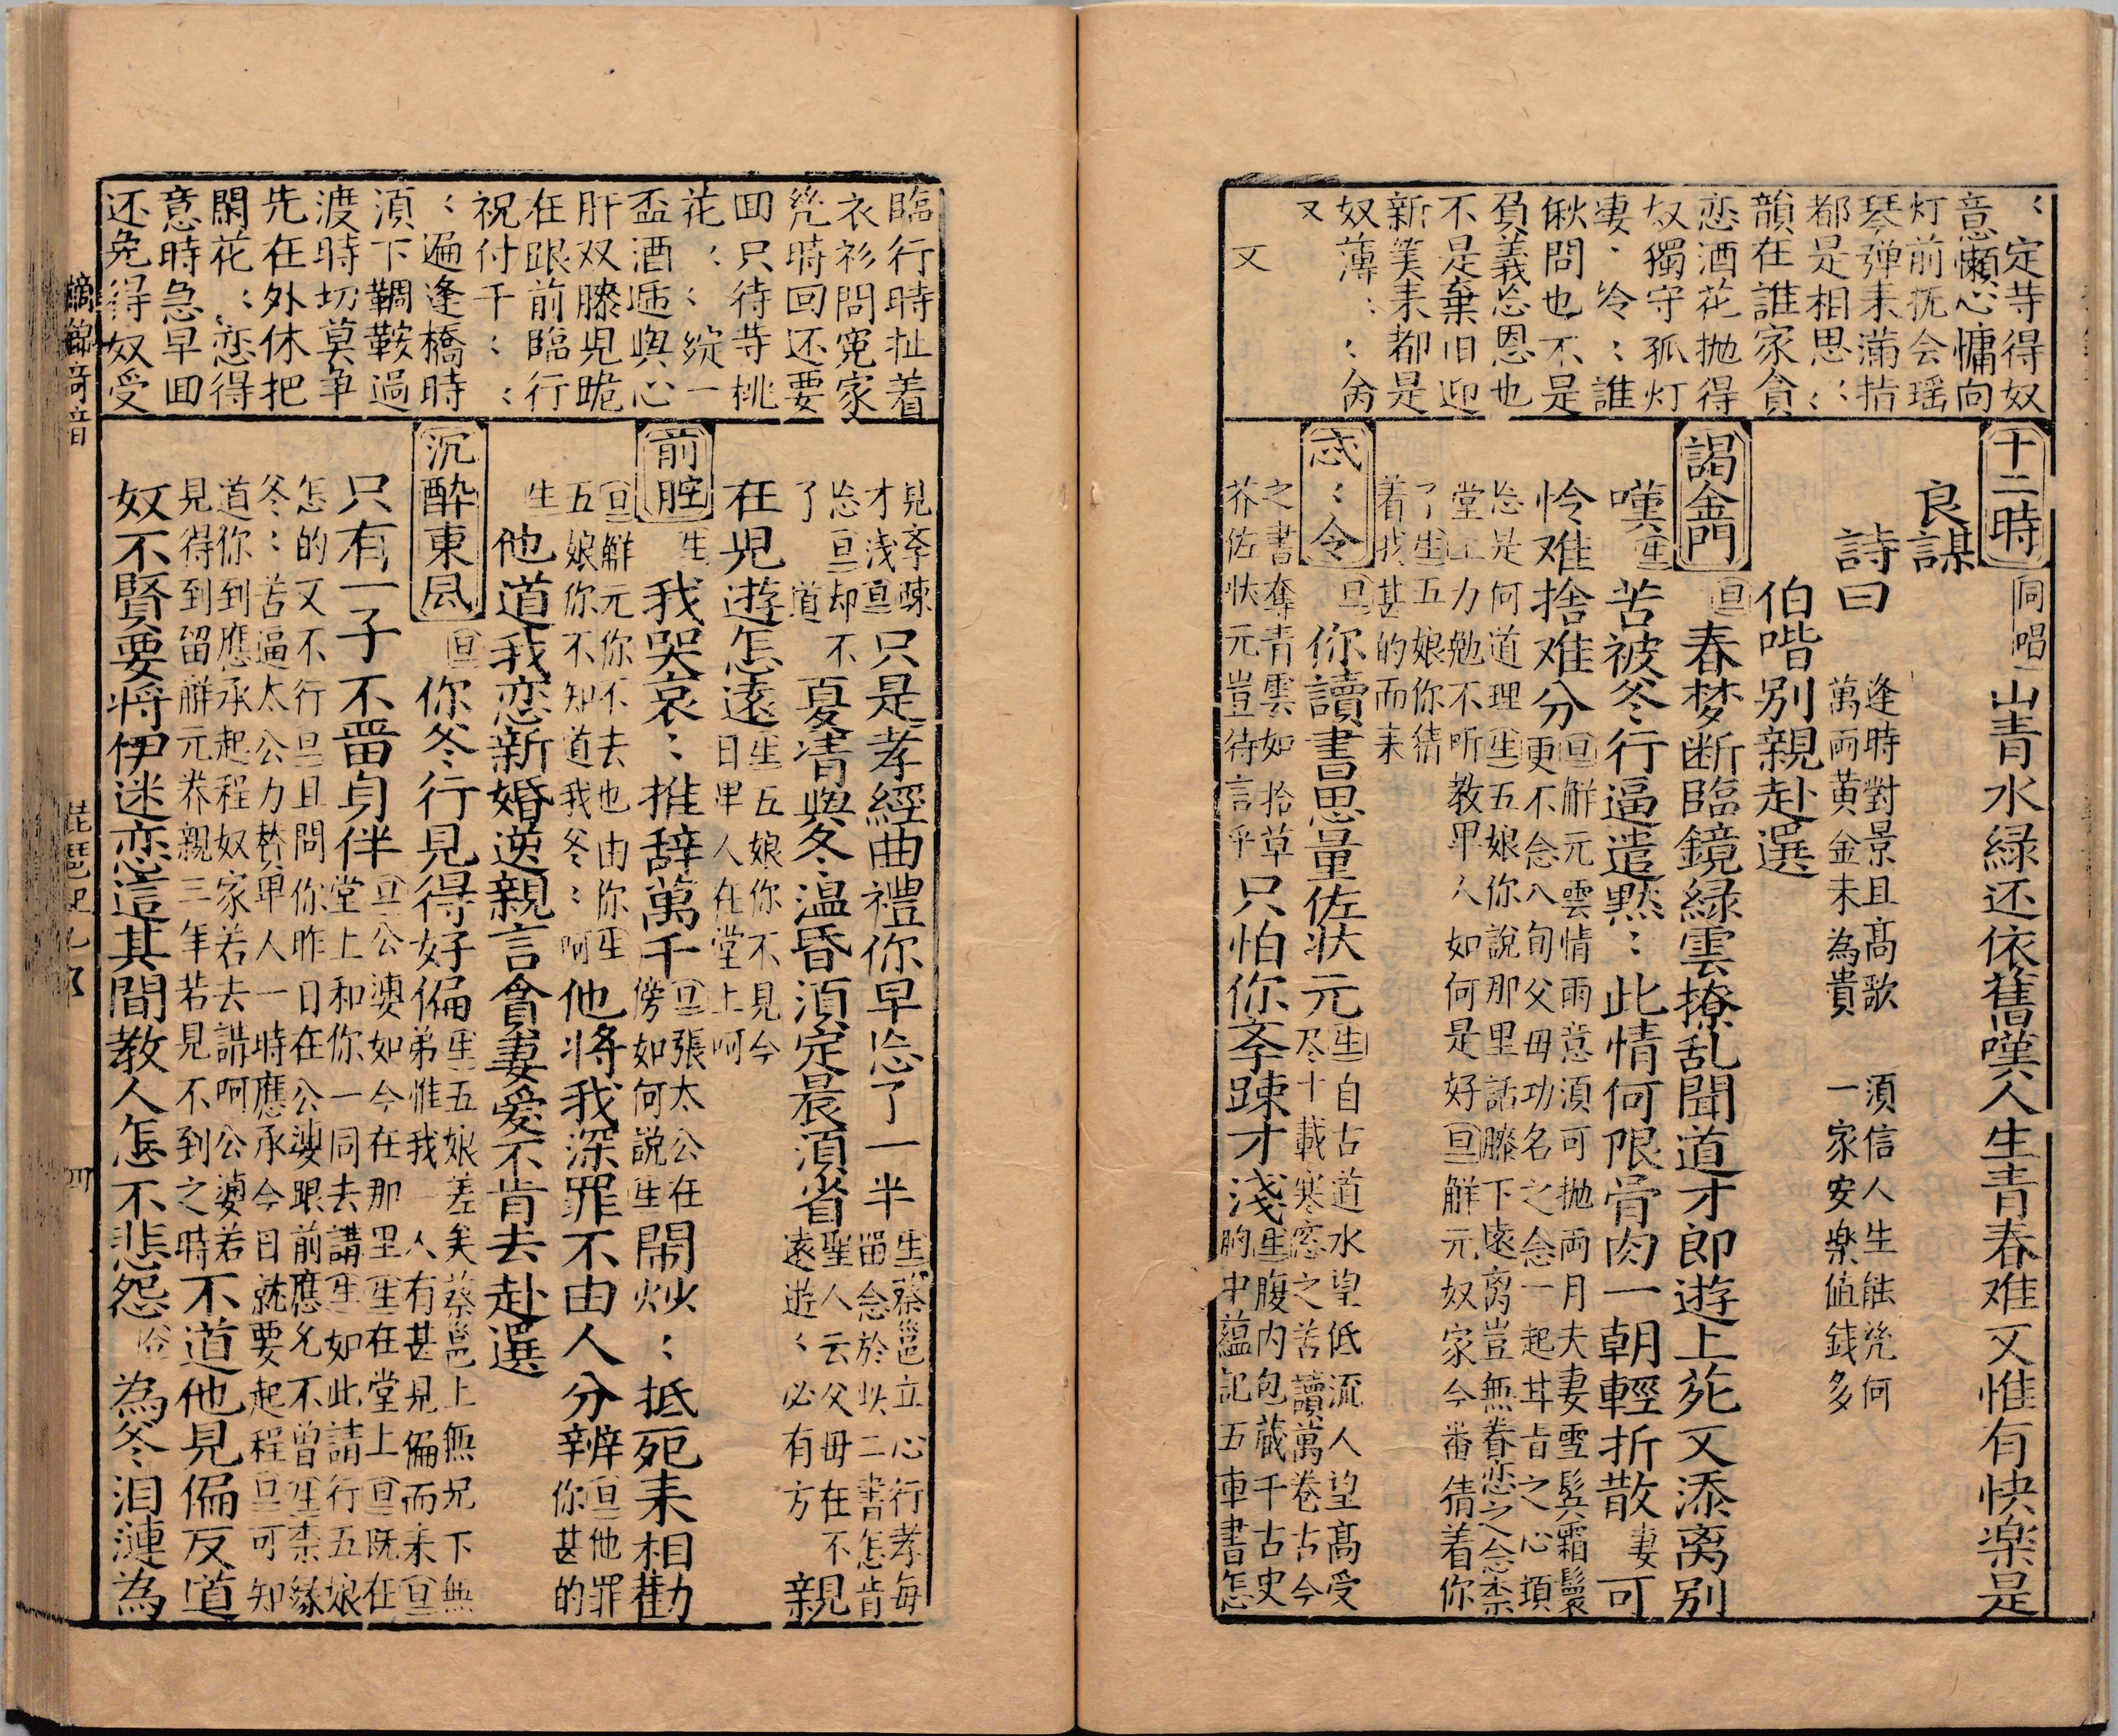 〻定苓得奴
意懶心慵向
灯前抚会瑶
琴弹耒滿指
都是相思〻〻
韻在誰家貪
恋酒花抛得
奴獨守孤灯
凄〻冷〻誰
偢問也不是
負義忘恩也
不是棄旧迎
新笑耒都是
奴薄〻〻
又　又
十二時
同唱
山青水緑还依舊嘆人生青春难又惟有快楽是
良謀
詩曰
逢時對景且高歌　須信人生能幾何
萬両黄金未為貴　一家安楽值銭多
伯喈别親赴選
謁金門
旦
春梦断臨鏡緑雲撩乱聞道才郎遊上苑又添离别
嘆
生
苦被冬行逼遣黙〻此情何限骨肉一朝輕折散
妻
可
怜难捨难分
旦觧元雲情雨意須可抛両月夫妻雪鬂霜鬟
更不念八旬父毋功名之念一起甘旨之心頊
忘是何道理生五娘你說那里話膝下遠离豈無眷恋之念柰
堂上力勉不听教卑人如何是好旦觧元奴家今番猜着你
了生五娘你猜
着我甚的而耒
忒〻令
旦
你讀書思量佐状元
生自古道水望低流人望高受
尽十載寒窓之苦讀萬卷古今
之書奪青雲如拾草
芥佐状元豈待言乎
只怕你斈踈才淺
生腹内包蔵千古史
胸中蘊記五車書怎
臨行時扯着
衣衫問寃家
幾時回还要
囬只待苓桃
花〻〻綻一
盃酒逓與心
肝双膝皃跪
在跟前臨行
祝付千〻〻
〻遍逢橋時
湏下鞽鞍過
渡時切莫争
先在外休把
閑花〻恋得
意時急早囬
还免得奴受
見斈踈
才浅旦
只是孝經曲禮你早忘了一半
生蔡邕立心行孝每
畱念於此二書怎肯
忘旦却不
了　道
夏凊與冬温昏湏定晨湏省
聖人云父毋在不
遠遊〻必有方
親
在皃遊怎遠
生五娘你不見今
日卑人在堂上呵
前腔
生
我哭哀〻推辞萬千
旦張太公在
傍如何説生
閙炒〻抵死耒相勸
旦觧元你不去也由你生
五娘你不知道我冬〻呵
他将我深罪不由人分辨
旦他罪
你甚的
生
他道我恋新婚逆親言貪妻愛不肯去赴選
沉酔東风
旦
你冬行見得好偏
生五娘差矣蔡邕上無兄下無
弟惟我一人有甚見偏而耒旦
只有一子不畱身伴
旦公婆如今在那里生在堂上旦既在
堂上和你一同去講生如此請行五娘
怎的又不行旦且問你昨日在公婆跟前應允不曾生柰緣
冬〻苦逼太公力贊卑人一時應承今日就要起程旦可知
道你到應承起程奴家若去講呵公婆若
見得到留觧元养親三年若見不到之時
不道他見偏反道
奴不賢要将伊迷恋這其間教人怎不悲怨
合
為冬泪漣為
琵琶記
四